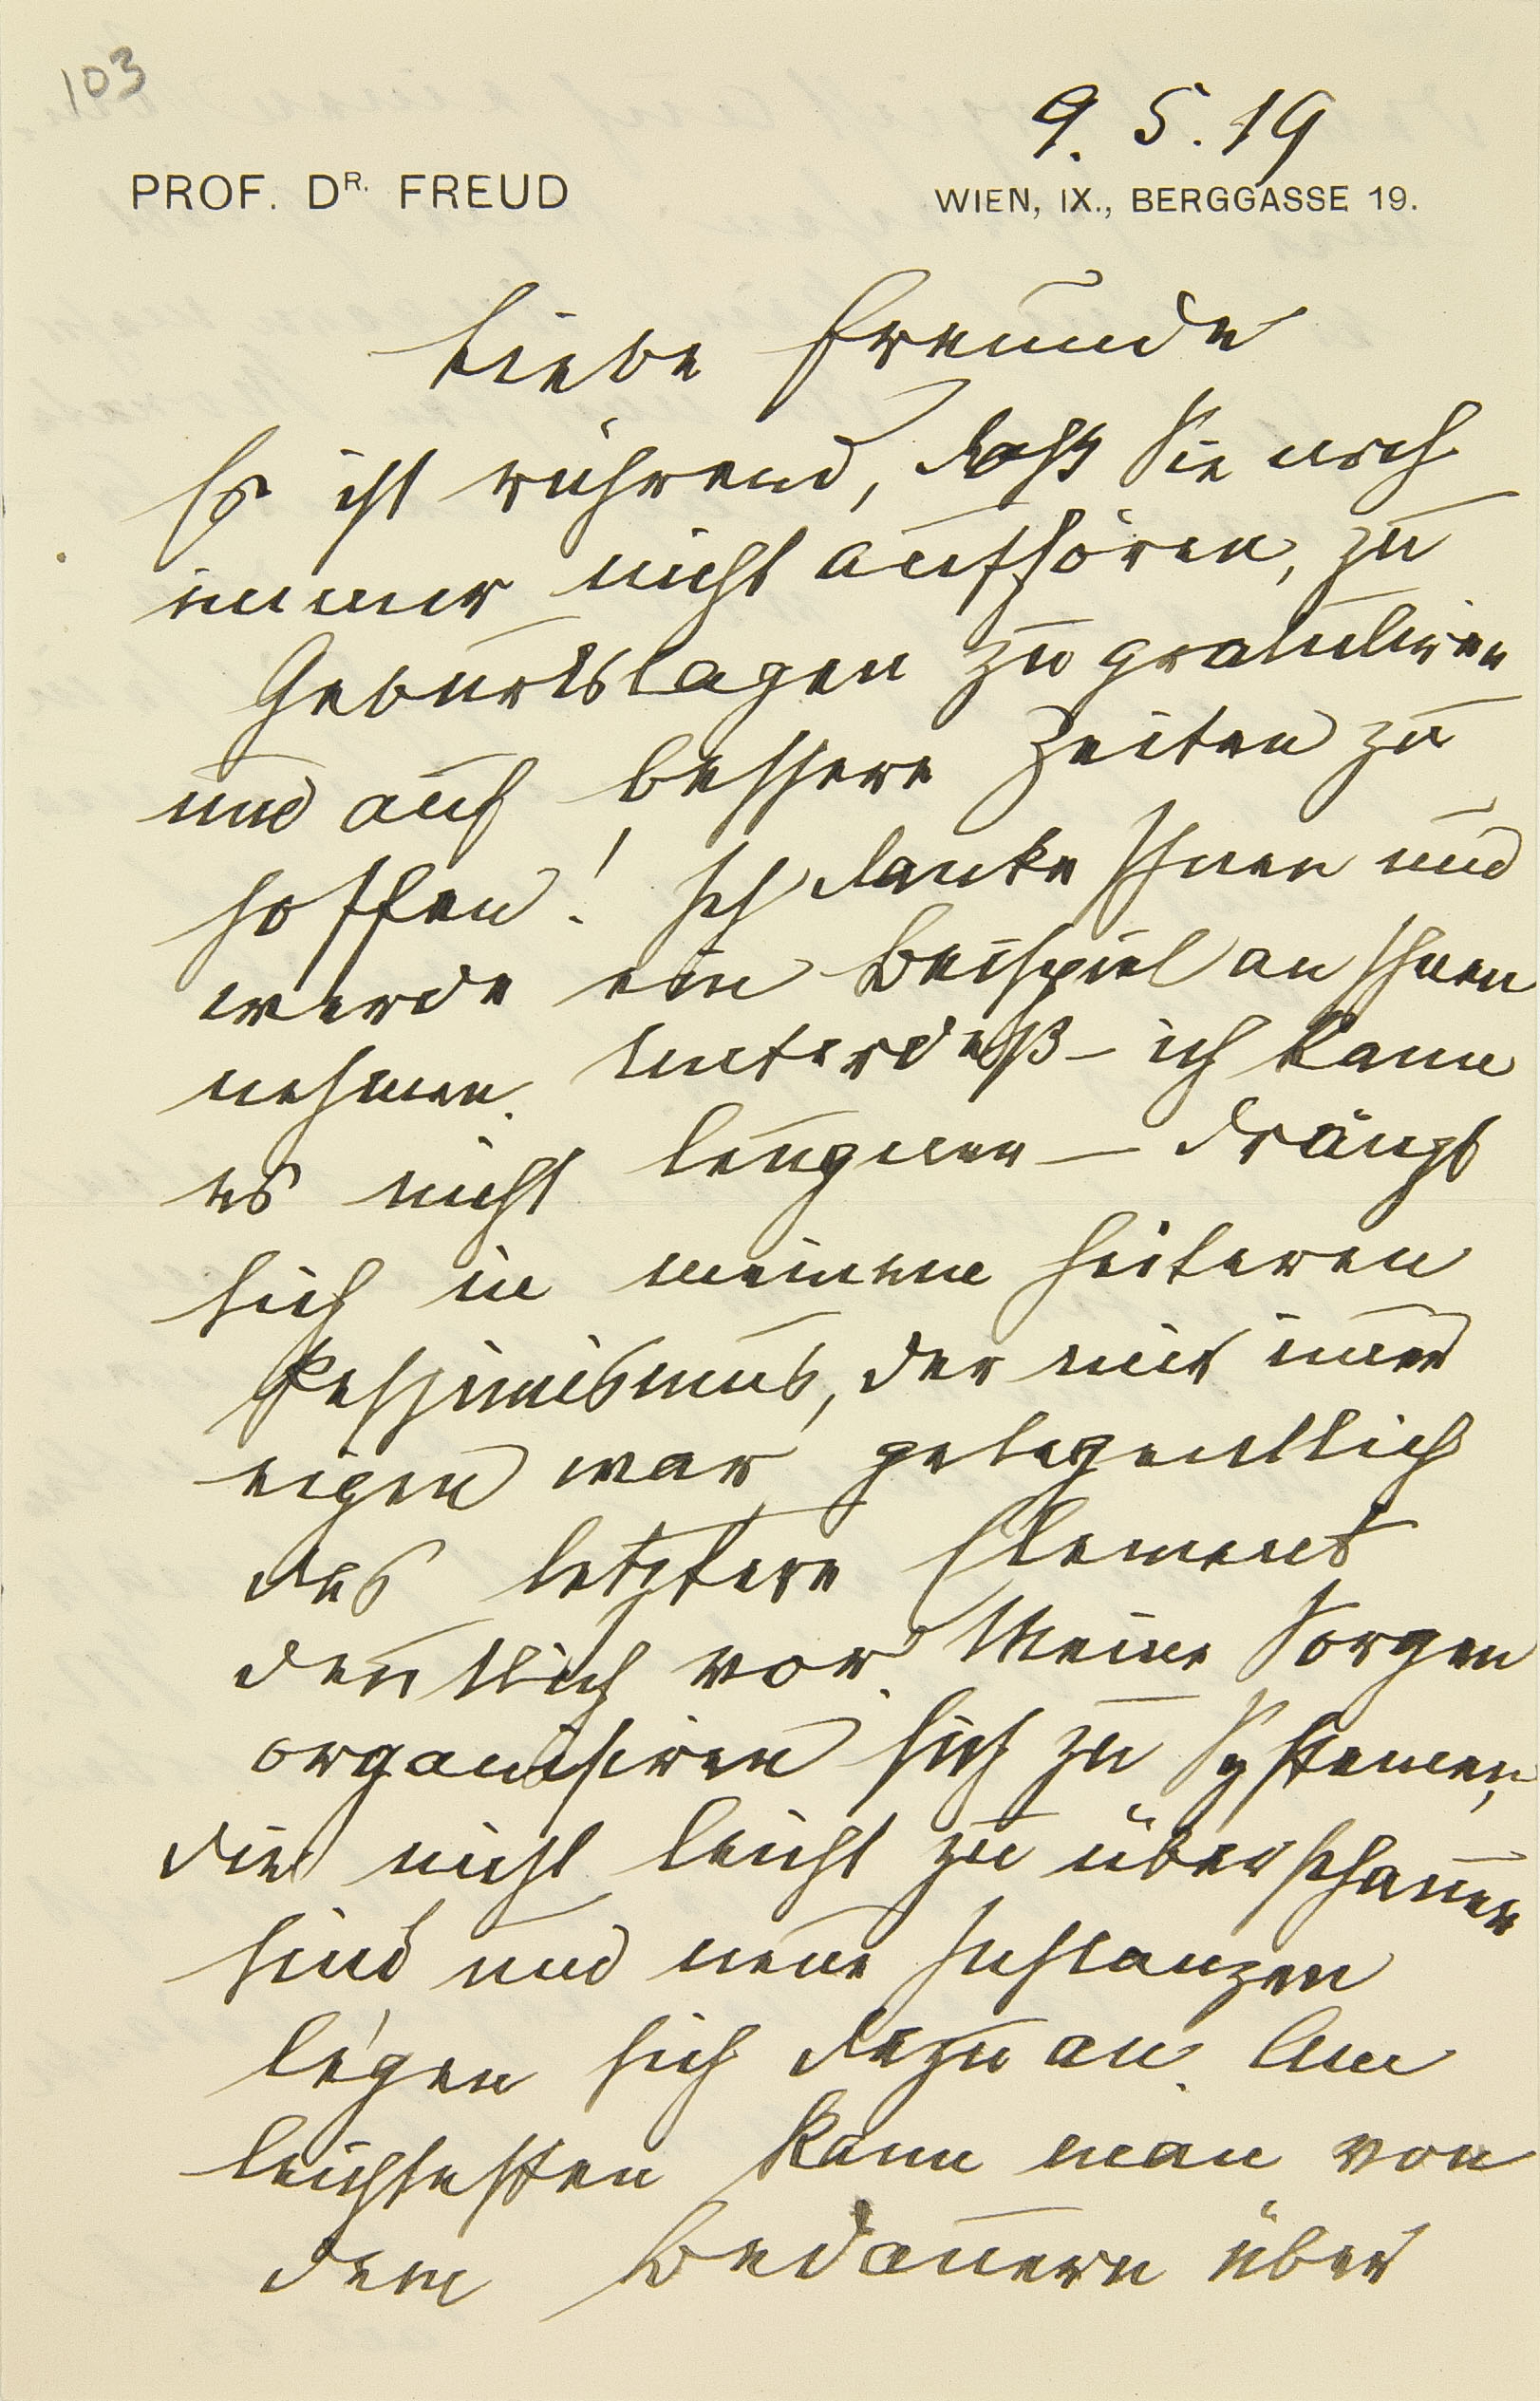 103
9. 5. 19
PROF. DR. FREUD
WIEN, IX., BERGGASSE 19.
Liebe Freunde
Es ist rührend, daß Sie noch
immer nicht aufhören, zu
Geburtstagen zu gratuliren
und auf bessere Zeiten zu
hoffen! Ich danke Ihnen und
werde ein Beispiel an Ihnen
nehmen. Unterdeß – ich kann
es nicht leugnen – drängt
sich in meinem heiteren
Pessimismus, der mir immer
eigen war, gelegentlich
das letztere Element
deutlich vor. Meine Sorgen
organisiren sich zu Systemen,
die nicht leicht zu überschauen
sind und neue Instanzen
legen sich dazu an. Am
leichtesten kann man von
dem Bedauern über